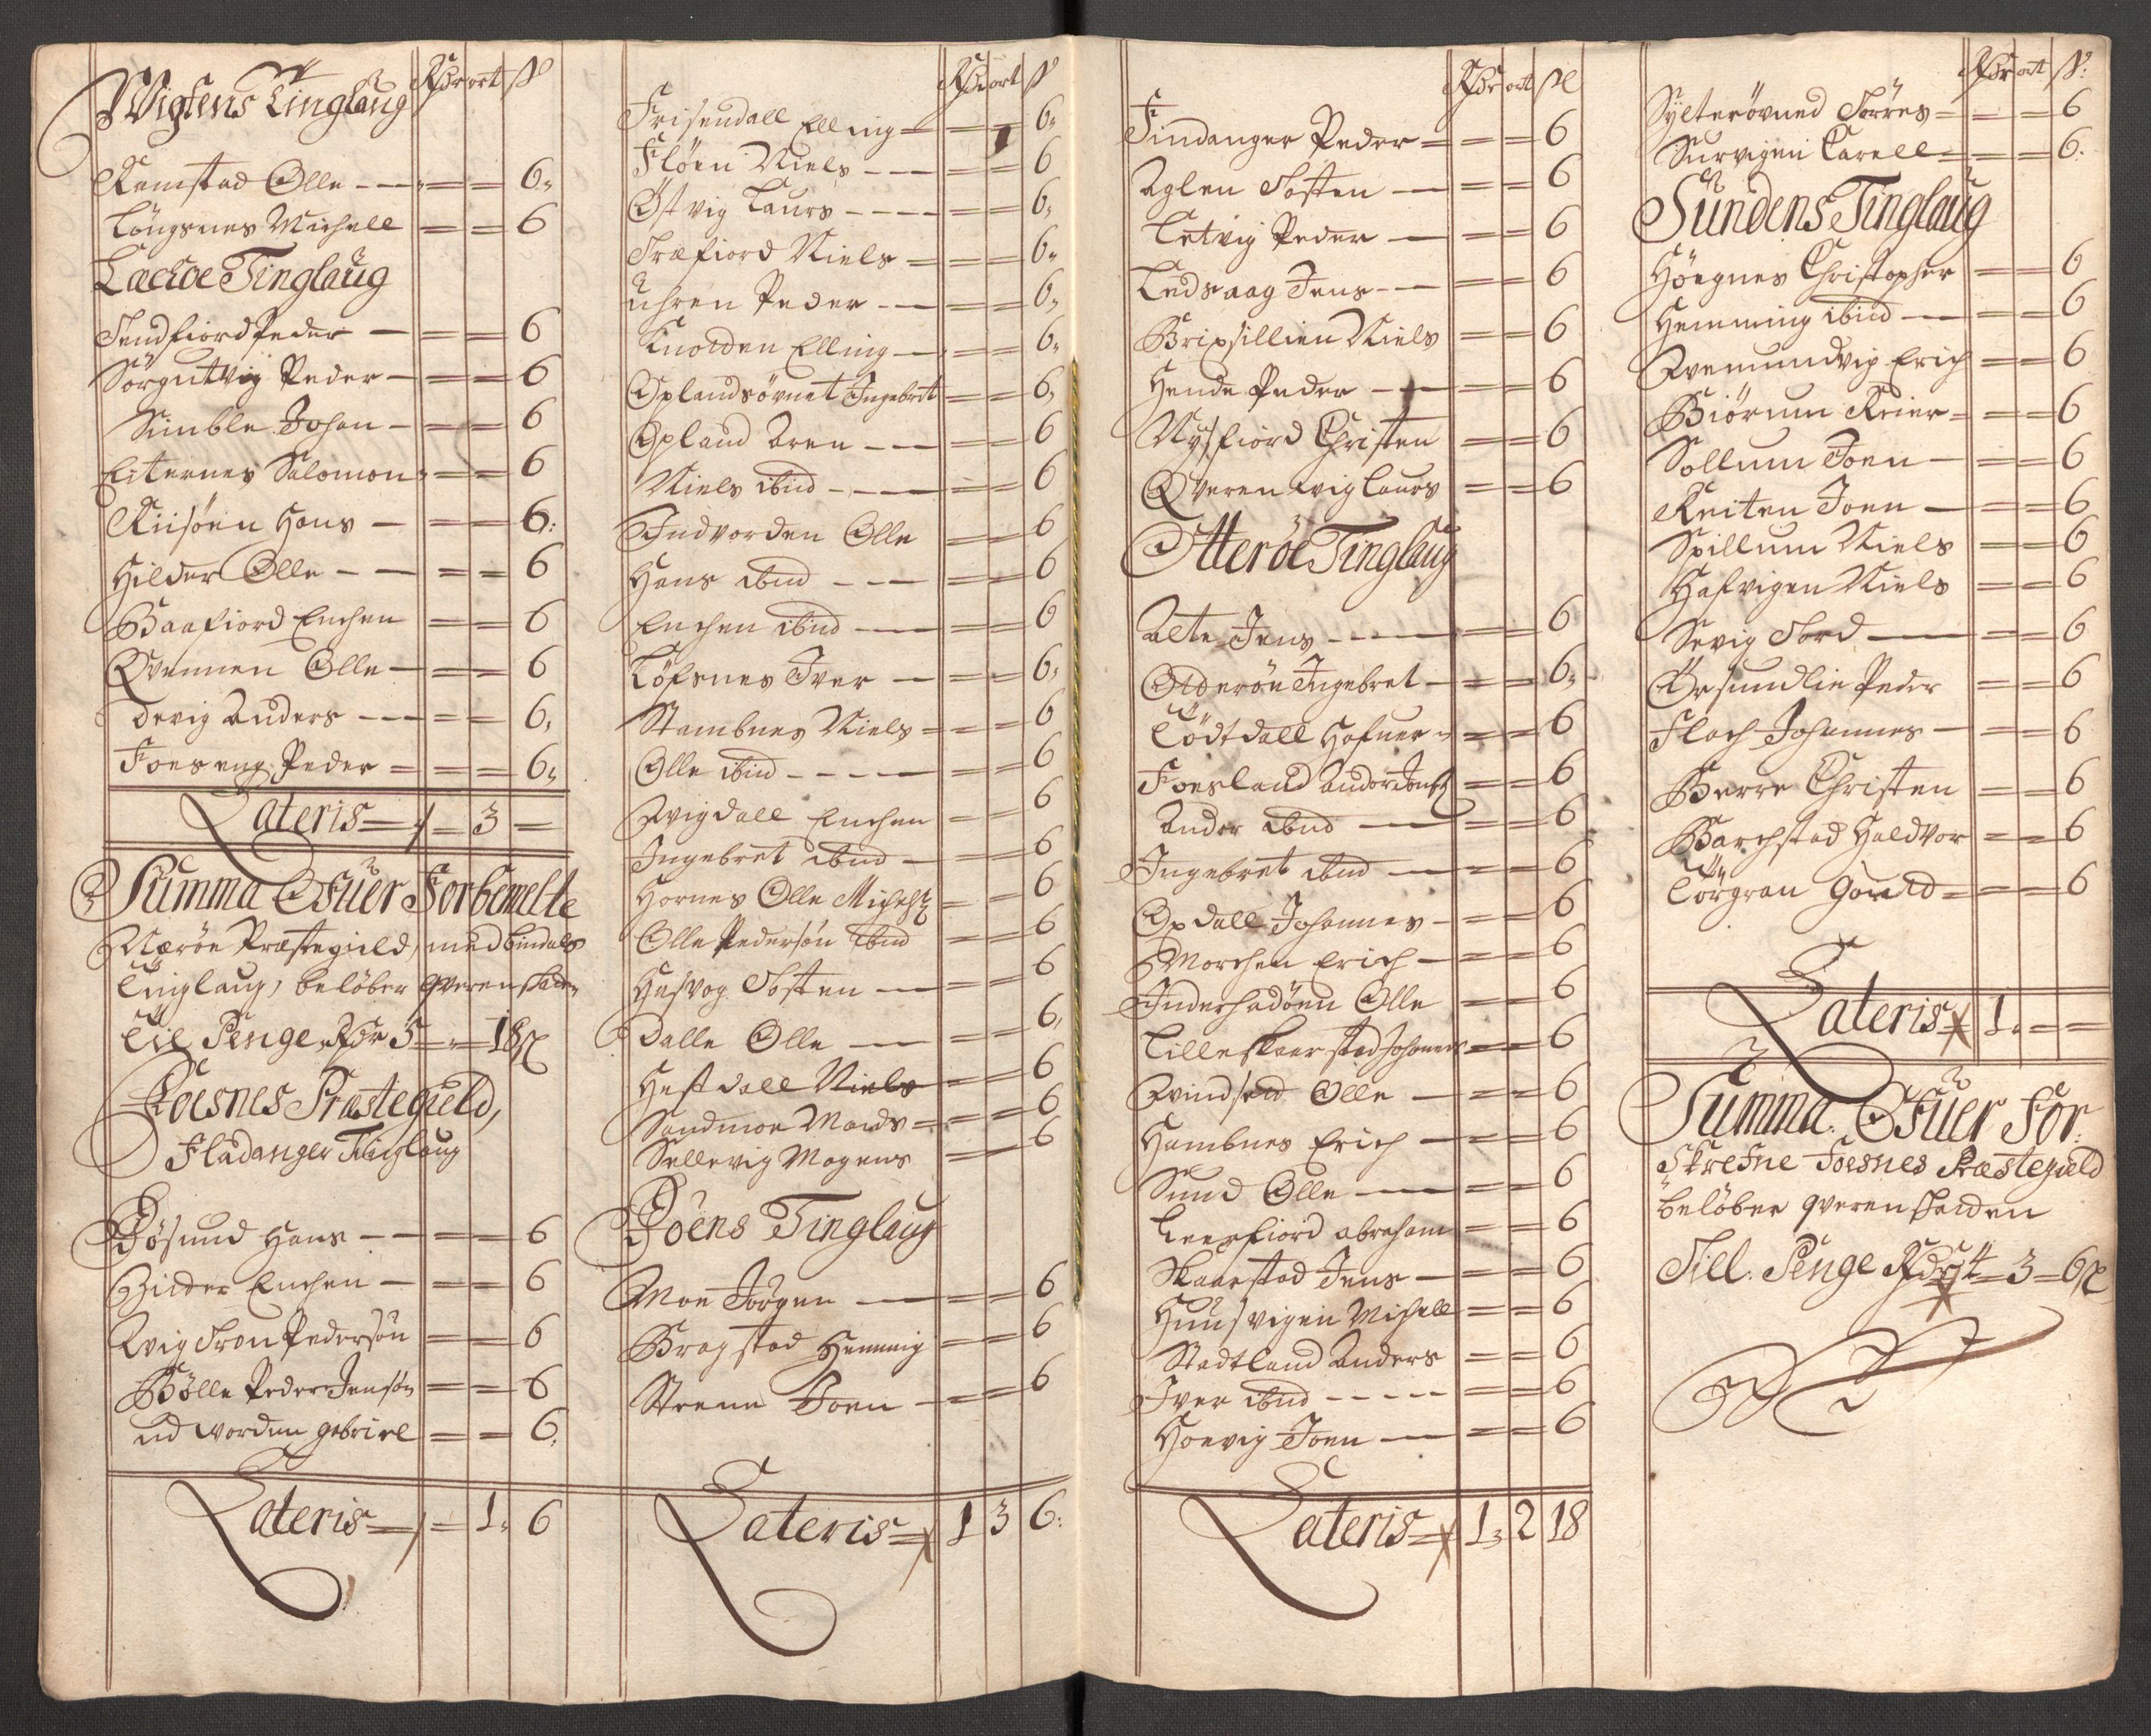 Wigtens Tinglaug Rdr ort ß
Ramstad Olle - - - = = 6
Löugsnes Michell = = 6
Læchoe Tinglaug
Tendfiord Peder - = = 6
Sörgutvig Peder - = = 6
Simble Johan - = = 6
Eiternes Salomon = = 6
Riisöen Hans - = = 6
Hilder Olle - - = = 6
Baafiord Enchen = = 6
Qvennen Olle - = = 6
devig Anders - - - = = 6
Foeseng Peder = = = 6
Lateris = = 3 -
Summa Ofuer Forbemelte
Nærøe Præstegield, med bindals
Tinglaug, beløber qvernskatten
til Penge Rdr 5 = - 18 ß
Foesnes Præstegield,
Fladanger Tinglaug
Bösund Hans - - = = 6
Zilder Enchen - = = 6
Avig Tron Pedersøn = = 6
Bölle Peder Jensøn = = 6
ud worden gabriel = = 6
Lateris = = 1 6
Rdr ort ß
Frisendall Elling = = = 6
Flöen Niels - - - = = 6
Östvig Laurs - - - - = = 6
Træfiord Niels = = = 6
Uhren Peder - - = = 6
Knolden Elling - = = 6
Oplandsövnet Ingebret = = 6
Opland Aren - - = = 6
Niels ibid - - - = = 6
Indvorden Olle = = 6
Hans ibid - - - = = 6
Enchen ibid - = = 6
Löfsnes Iver - = = 6
Stambnes Niels = = = 6
Olle ibid - - - - = = 6
Avigdall Enchen = = 6
Ingebret ibid - = = 6
Hornes Olle Michels: = = 6
Olle Pedersøn ibid = = 6
Hasvog Tosten - = = 6
Dalle Olle - = = 6
Hestdall Niels = = 6
Sandmoe Mads = = = 6
Sellevig Mogens = = 6
Böens Tinglaug
Moe Jörgen - = = 6
Bragstad Hemmig = = 6
Strenn Joen - = = 6
Lateris = 1 3 6
Rdr ort ß
Findanger Peder = = = 6
Aglen Tosten - = = 6
Letvig Peder - = = 6
Ledsaag Jens - - = = 6
Bripsillien Niels = = 6
Hende Peder - - = = 6
Nysfiord Christen = = 6
Qverenvig Laurs = = 6
Otteröe Tinglaug
Alte Jens - - - - = = 6
Olderöe Ingebret - = = 6
Lödtdall Hafuer = = = 6
Foesland Ander Jons: = = 6
Ander ibid - = = 6
Ingebret ibid - = = 6
Opdall Johannes - = = 6
Morchen Erich - = = 6
Inderhadöen Olle = = 6
Lilleskaerstad Johannes = = 6
Avindseed Olle - = = 6
Hambnes Erich - = = 6
Sund Olle - = = 6
Leerfiord abraham = = 6
Skaarstad Jens - = = 6
Huusvigen Michell = = 6
Stadtland Anders = = 6
Iver ibid - - - - = = 6
Hoevig Joen - = = 6
Lateris = 1 2 18
Rdr ort ß:
Sylterövned Törres = = = 6
Survigen Carell = = = 6
Sundens Tinglaug
Höegnes Christopher = = 6
Hemming ibid - = = 6
Avemundvig Erich = = 6
Biörum Reier = = = 6
Sollum Joen - = = 6
Reiten Joen - = = 6
Spillum Niels = = 6
Hafvigen Niels = = 6
Sevig Tord - = = 6
Örsundlie Peder = = 6
Flach Johannes - = = 6
Berre Christen = = 6
Barchstad Haldvor = = 6
Törgran = = = 6
Lateris = 1 - -
Summa. Ofuer For:
Skrefne Foesnes Præstegield
beløber qverenskatten
Till. Penge Rdr 4 = 3 = 6 ß